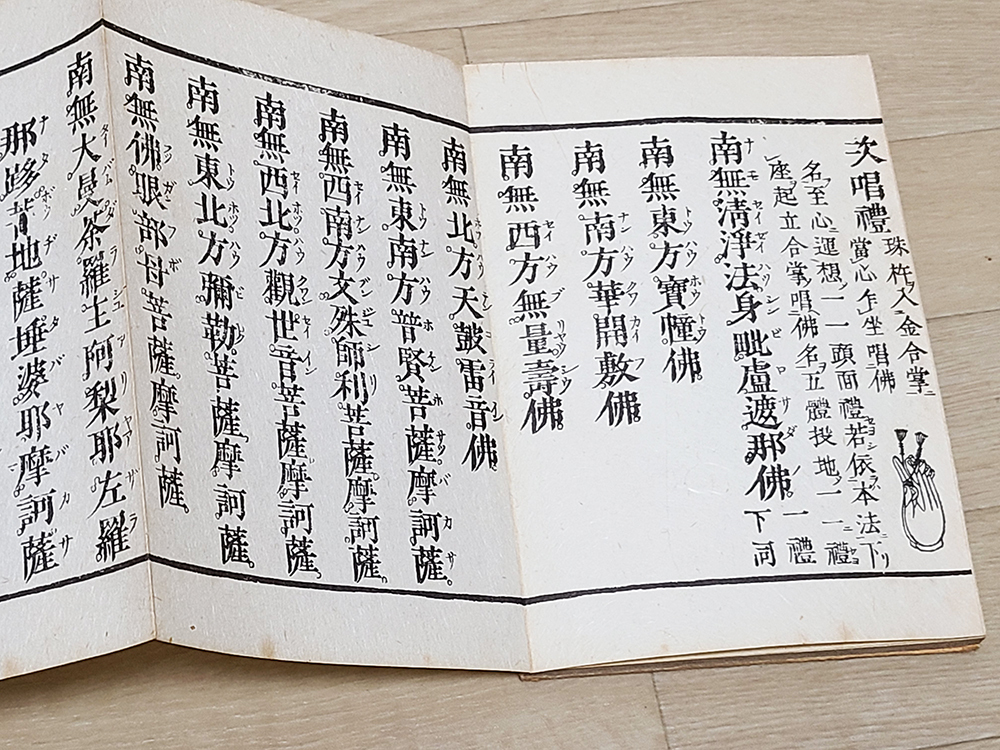 次唱禮 珠杵入金合掌ニ
當心乍坐唱佛
名至心運想一一頭面禮若依本法下
座起立合掌唱佛名立體投地一一禮
南無淸淨法身毗盧遮那佛 一禮下同
南無東方寶幢佛
南無南方華開敷佛
南無西方無量壽佛
南無北方天皷雷音佛
南無東南方普賢菩薩摩訶薩
南無西南方文殊師利菩薩摩訶薩
南無西北方觀世音菩薩摩訶薩
南無東北方彌勒菩薩摩訶薩
南無佛眼部母菩薩摩訶薩
南無大曼荼羅主阿梨耶左羅
那哆菩地薩埵婆耶摩訶薩